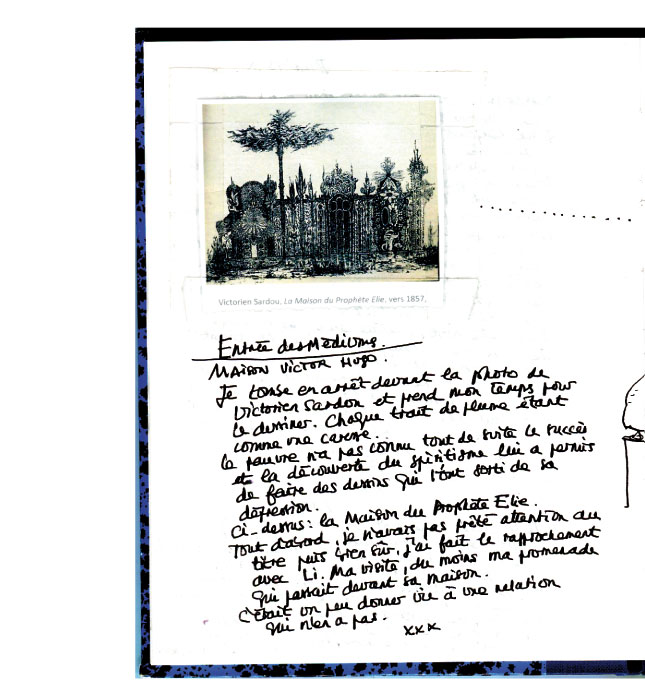 Victorien Sardou, La Maison du Prophète Elie, vers 1857.
Entrée des Médiums.
MAISON VICTOR HUGO.
Je tombe en arrêt devant la photo de
Victorien Sardou et prend mon temps pour
le dessiner. Chaque trait de plume étant
comme une caresse.
le pauvre n'a pas connu tout de suite le succès
et la découverte du spiritisme lui a permis
de faire des dessins qui l'ont sorti de sa
dépression.
Ci-dessus : la Maison du Prophète Elie.
Tout d'abord, je n'avais pas prêté attention au
titre puis bien sûr, j'ai fait le rapprochement
avec Li. Ma visite, du moins ma promenade
qui passait devant sa maison.
C'était un peu donner vie à une relation
qui n'en a pas.
xxx